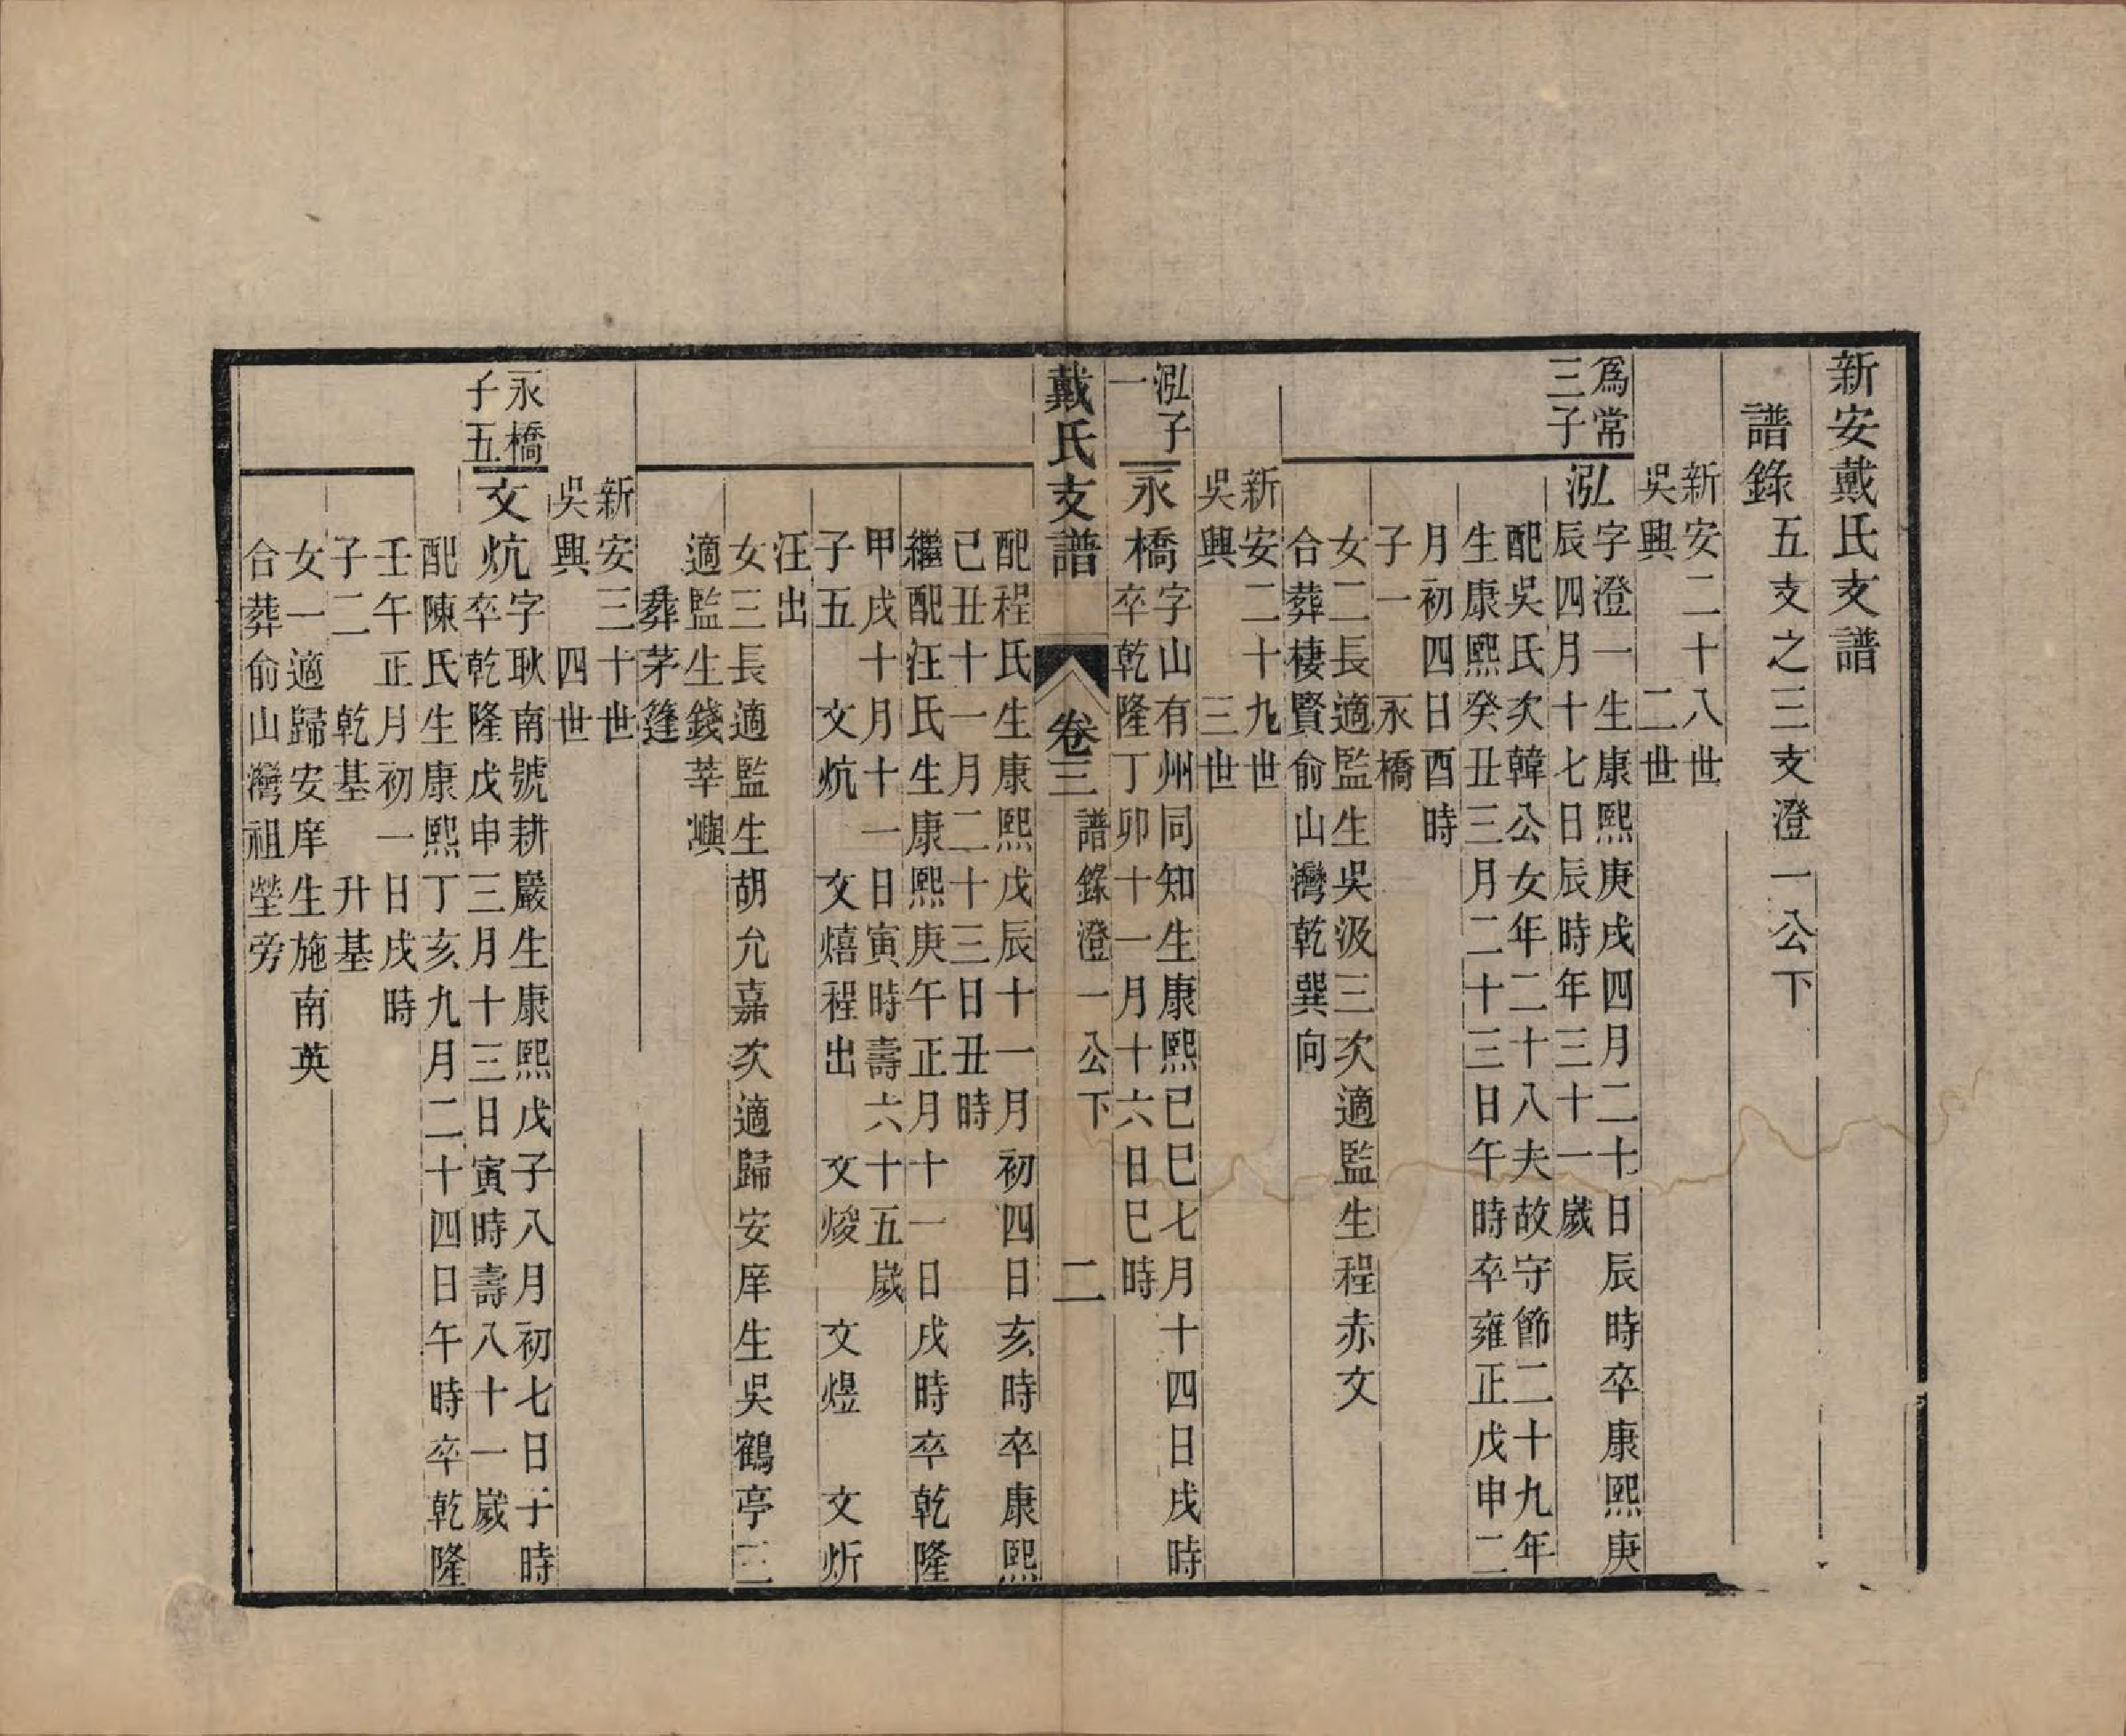 新安戴氏支譜
譜錄五支之三支澄一公下
新安二十八世
吳興　二世
爲常
三子
泓字澄一生康熙庚戌四月二十日辰時卒康熙庚
辰四月十七日辰時年三十一歲
配吳氏次韓公女年二十八夫故守節二十九年
生康熙癸丑三月二十三日午時卒雍正戊申二
月初四日酉時
子一　永橋
女二長適監生吳汲三次適監生程赤文
合葬棲賢俞山灣乾巽向
新安二十九世
吳興　三世
泓子
一
永橋字山有州同知生康熙己巳七月十四日戌時
卒乾隆丁卯十一月十六日巳時
戴氏支譜　卷三　譜錄澄一公下　二
配程氏生康熙戊辰十一月初四日亥時卒康熙
己丑十一月二十三日丑時
繼配汪氏生康熙庚午正月十一日戌時卒乾隆
甲戌十月十一日寅時壽六十五歲
子五　文炕　文熺程出　文焌　文煜　文炘
汪出
女三長適監生胡允嘉次適歸安庠生吳鶴亭三
適監生錢莘嶼
葬茅篷
新安三十世
吳興　四世
永橋
子五
文炕字耿南號耕巖生康熙戊子八月初七日子時
卒乾隆戊申三月十三日寅時壽八十一歲
配陳氏生康熙丁亥九月二十四日午時卒乾隆
壬午正月初一日戌時
子二　乾基　升基
女一適歸安庠生施南英
合葬俞山灣祖塋旁